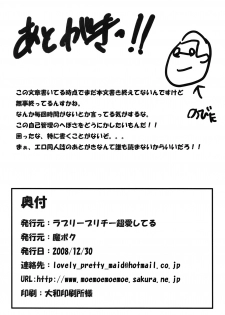 あとがきっ!!
のびた
この文章書いてる時点でまだ本文書き終えてないんですけど
無事終ってるんすかね。
なんか毎回時間がないとか言ってる気がするな、
この自己管理のへぼさをどうにかしたいもんだ!!
困ったな、特に書くことがないど。。。
まぁ、エロ同人誌のあとがきなんて誰も読まないからいいだろ!!
奥付
発行元:ラブリープリチー超愛してる
発行元:魔ボク
発行日:2008/12/30
連絡先:lovely_pretty_maid@hotmail.co.jp
URL:http://www.moemoemoemoe.sakura.ne.jp
印刷:大和印刷所様